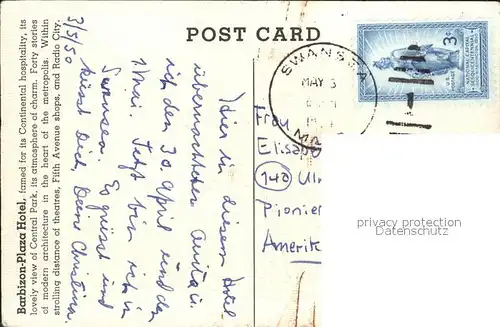 POST CARD
Barbizon-Plaza Hotel, famed for its Continental hospitality, its
lovely view of Central Park, its atmosphere of charm. Forty stories
of modern architecture in the heart of the metropolis. Within
strolling distance of theatres, Fifth Avenue shops, and Radio City.
3/5/50
Hier in diesem Hotel
übernachteten Anita u.
ich den 30. April und den
1. Mai. Jetzt bin ich in
Swansea. Es grüsst und
küsst Dich, Deine Christina.
SWANSEA
MAY 3
3¢
Frau
Elisab
14a Ul
Pionier
Amerik
privacy protection
Datenschutz